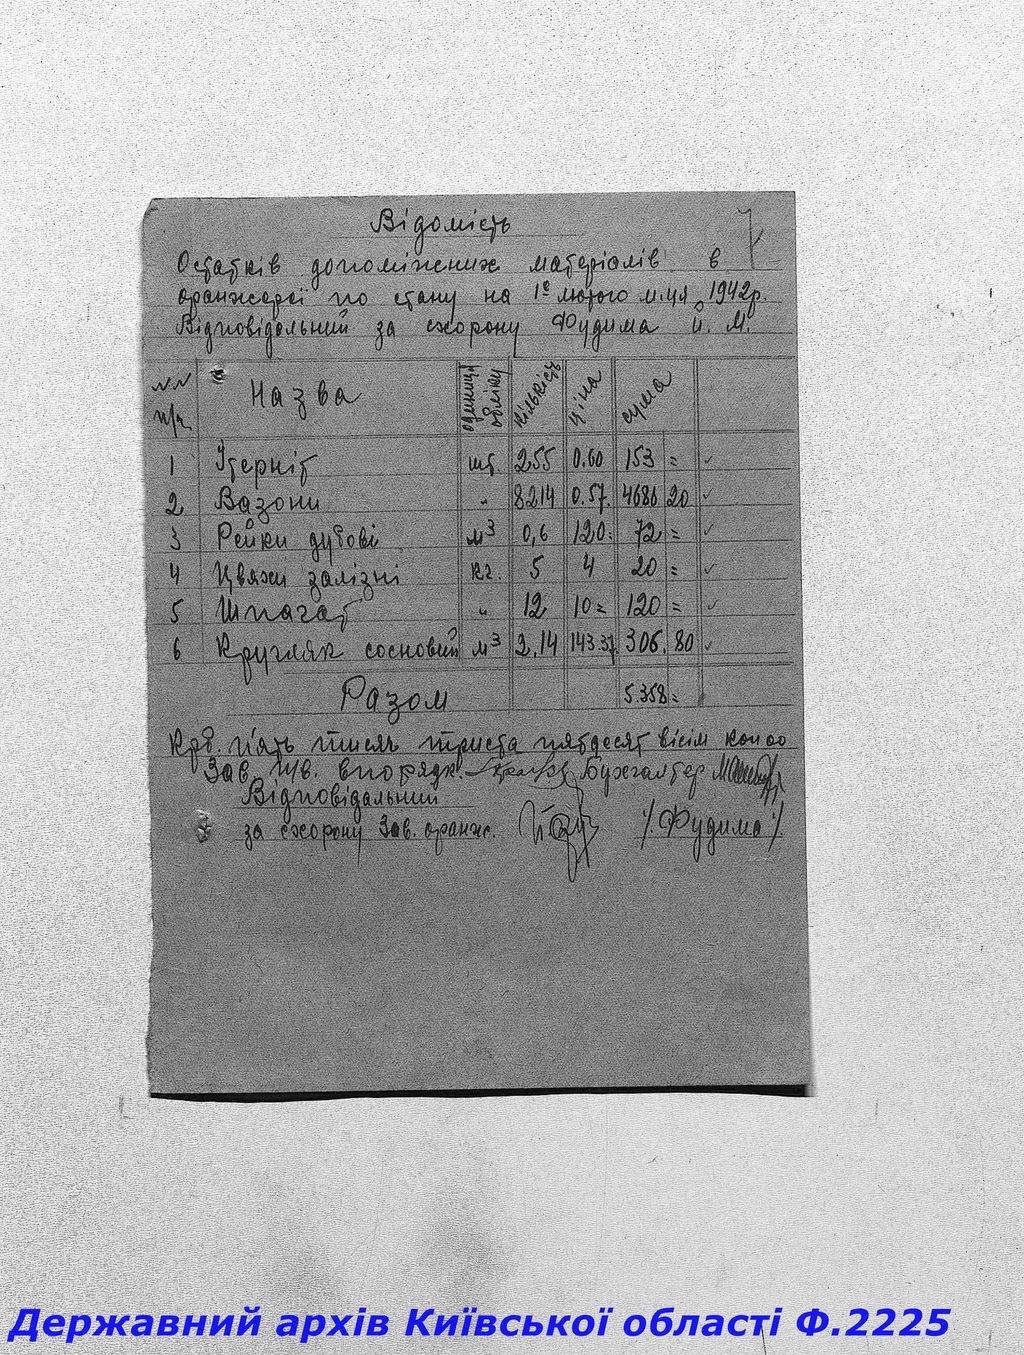 7
Відомість
Остатків допоміжних матеріялів в
оранжереї по стану на 1е лютого м-ця 1942р.
Відповідальний за схорону Фудима Й. М.
№№ п/ч Назва одиниця обліку кількість ціна сума
1 Ітерніт шт. 255 0.60 153 =
2 Вазони " 8214 0.57. 4686 20
3 Рейки дубові м³ 0,6 120= 72 =
4 Цвяхи залізні кг. 5 4 20 =
5 Шпагат " 12 10= 120 =
6 Кругляк сосновий м³ 2,14 143.37. 306. 80
Разом 5.358=
Крб. п'ять тисяч триста пятдесят вісім коп 00
Зав. впорядк. Бухгалтер
Відповідальний
за схорону Зав. оранж. /Фудима/
Державний архів Київської області Ф.2225